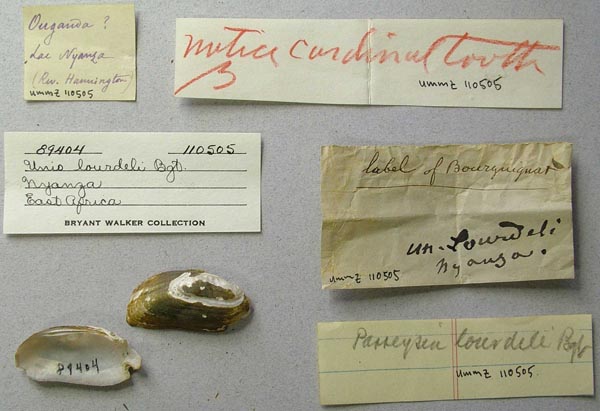 Ouganda ?
Lac Nyanza
(Rev. Hannington)
UMMZ 110505
notice cardinal tooth
B
UMMZ 110505
89404 110505
Unio lourdeli Bgt.
Nyanza
East Africa
BRYANT WALKER COLLECTION
label of Bourguignat
un. Lourdeli
Nyanza.
UMMZ 110505
89404
Parreysia lourdeli Bgt
UMMZ 110505.